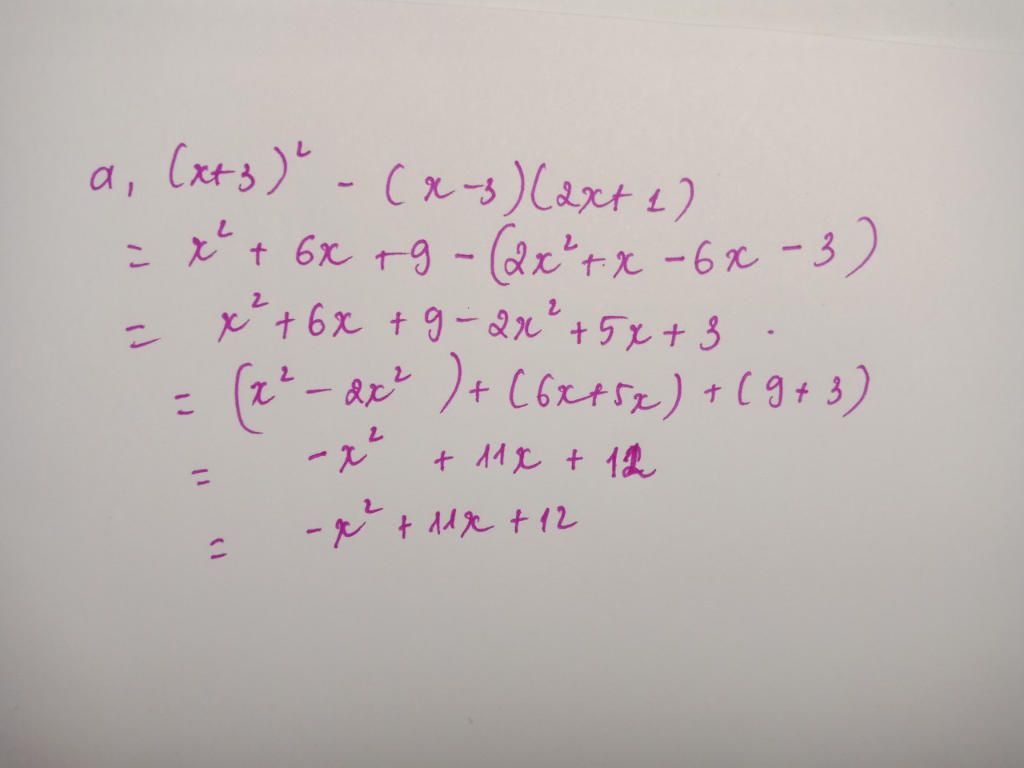 a, (x+3)² - (x-3)(2x+1)
= x² + 6x +9 - (2x²+x -6x -3)
= x²+6x +9-2x²+5x+3 .
= (x²-2x²)+(6x+5x)+(9+3)
= -x² + 11x + 12
= -x² +11x +12